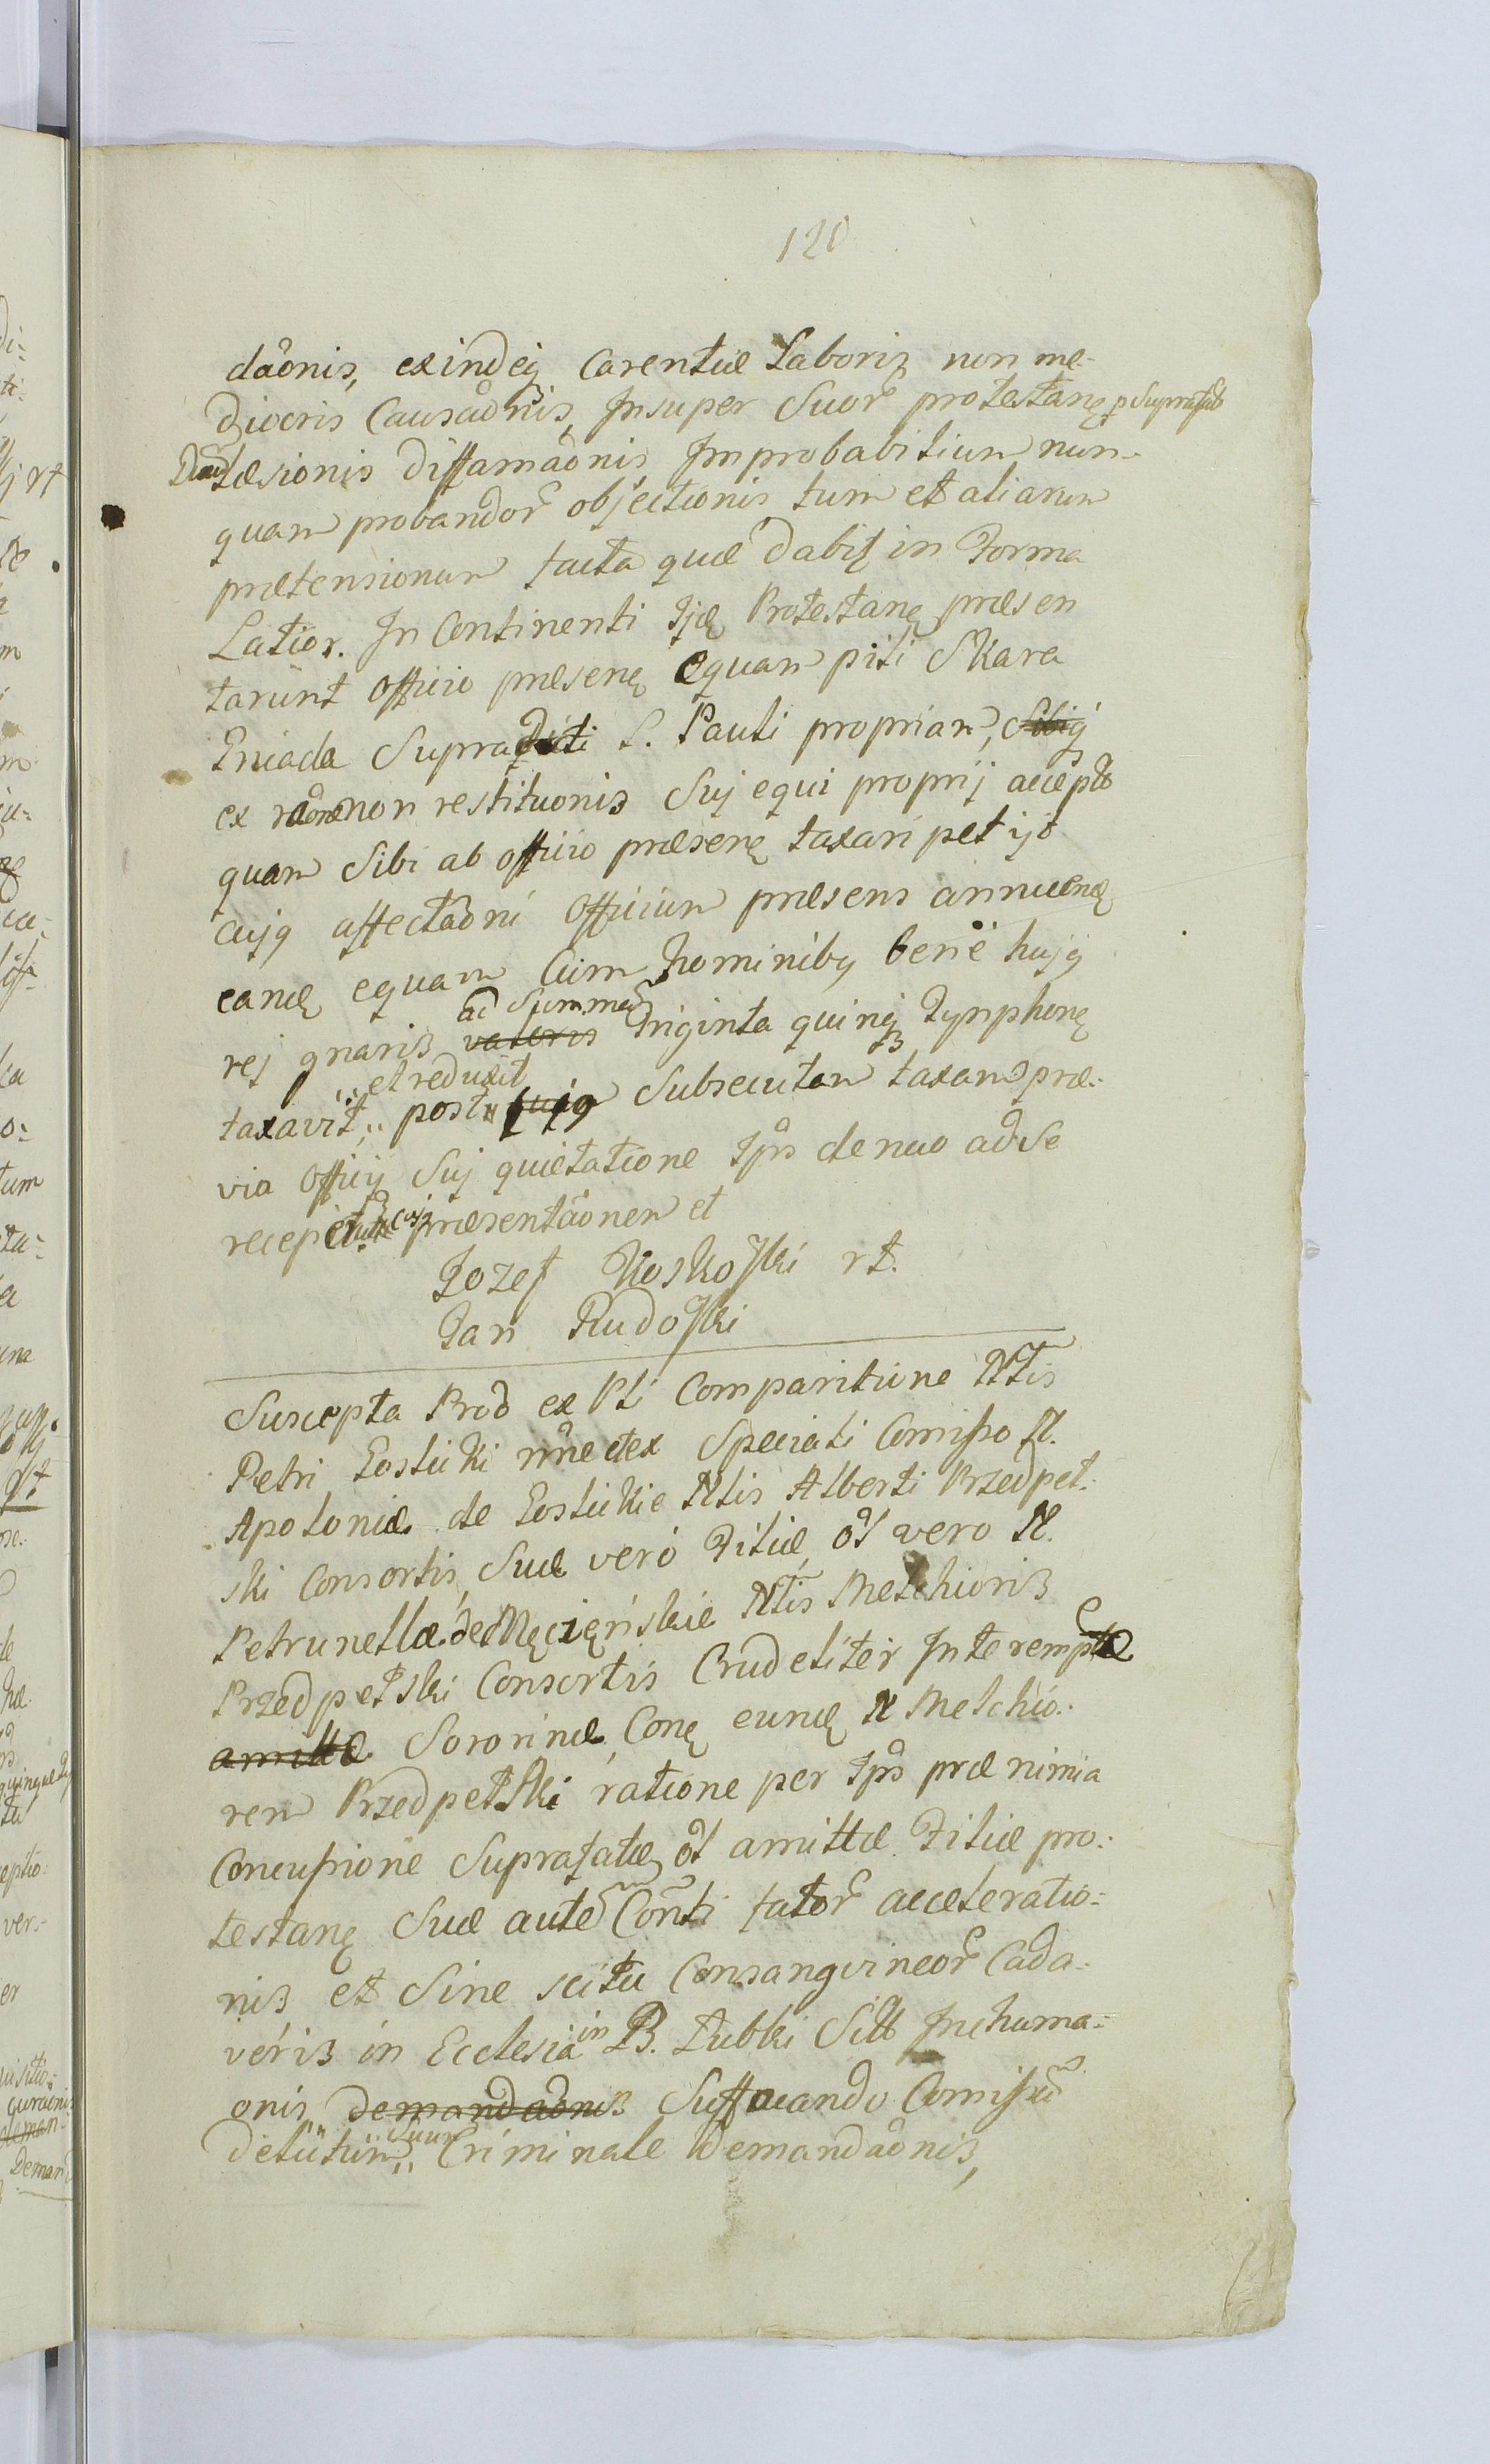 120
daõnis, exindeq carentiæ Laboris non me-
diocris Causaõnis, Insuper Suor protestanę p Suprafat
Læsionis diffamaõnis Improbabilium nun-
quam probandor objectionis tum et aliarum
prætensionum facta quæ dabit in Forma
Latior. In Continenti Ijdę Protestanę præsen
tarunt Officio præsenę equam piti Skara
Gniada Supradicti S. Pauli propriam, Sibiq
ex rõne non restituonis Suj equi proprij accepto
quam Sibi ab officio præsenę taxari petijt
cujq affectaõni Officium præsens annuenę
eandę equam Cum hominibq bene hujq
rej gnaris valoris ad Summam Triginta quinq Tynphonę
taxavit,, et reduxit post cujq Subsecutam taxam præ-
via Officij Suj quietatione Ips denuo ad Se
recepit præsentaõnem et
Jozef Koskoski rt.
Jan Rudoski
Suscepta Prod ex Pti Comparitione Nlis
Petri Łosticki nõne et ex Speciali Comisso N.
Apoloniæ de Łostickie Nlis Alberti Przedpeł-
ski Consortis, Suæ vero Filiæ, ot vero N.
Petrunellæ de Męcięńskie Nlis Melchioris
Przedpełski Consortis Crudeliter Interemptæ
amittæ Sororinæ, Conę eundę N Melchio-
rem Przedpełski ratione per Ips præ nimia
Concussione Suprafatæ ot amittæ Filiæ pro-
testanę Suæ autem Conti fator acceleratio-
nis et Sine scitu Consangvineor Cada-
veris in Ecclesia in B. Lubki Sitt Inhuma-
onis demandaõnis Suffocando Comissum
delictum,, Suum Criminale Demandaõnis,